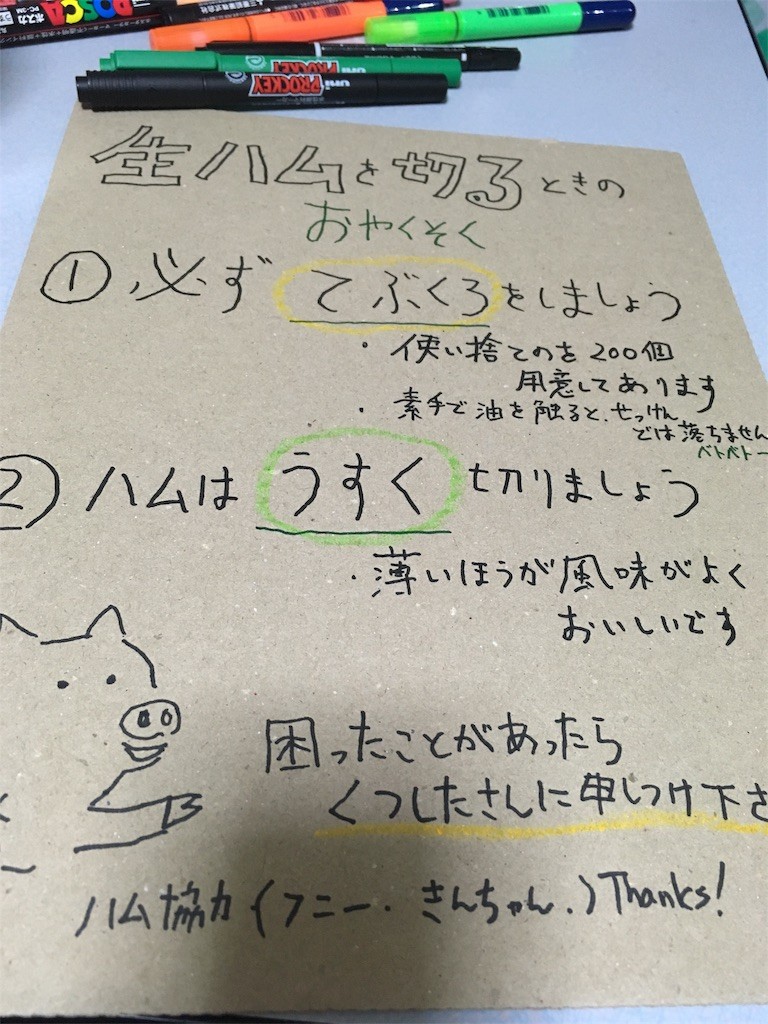 POSCA
PROCKEY
PROCKEY
生ハムを切るときの
おやくそく
① 必ず てぶくろをしましょう
・使い捨てのを200個
用意してあります
・素手で油を触ると、せっけん
では落ちません
ベトベトー
② ハムは うすく 切りましょう
・薄いほうが風味がよく
おいしいです
困ったことがあったら
くつしたさんに申しつけ下さ
ハム協力 (フニー. きんちゃん.) Thanks!